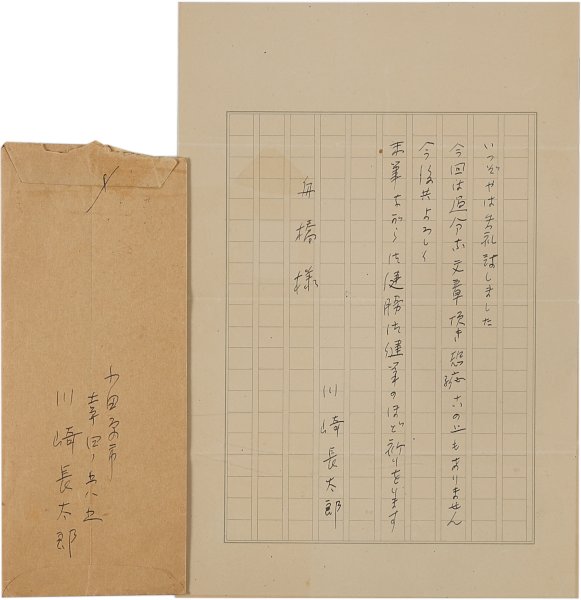 いつぞやは失礼致しました
今回は過分な文章頂き恐縮この上もありません
今後共よろしく
末筆ながら御健勝御健筆のほど祈りをります
川崎長太郎
舟橋様
小田原市
幸田ノ五八五
川崎長太郎